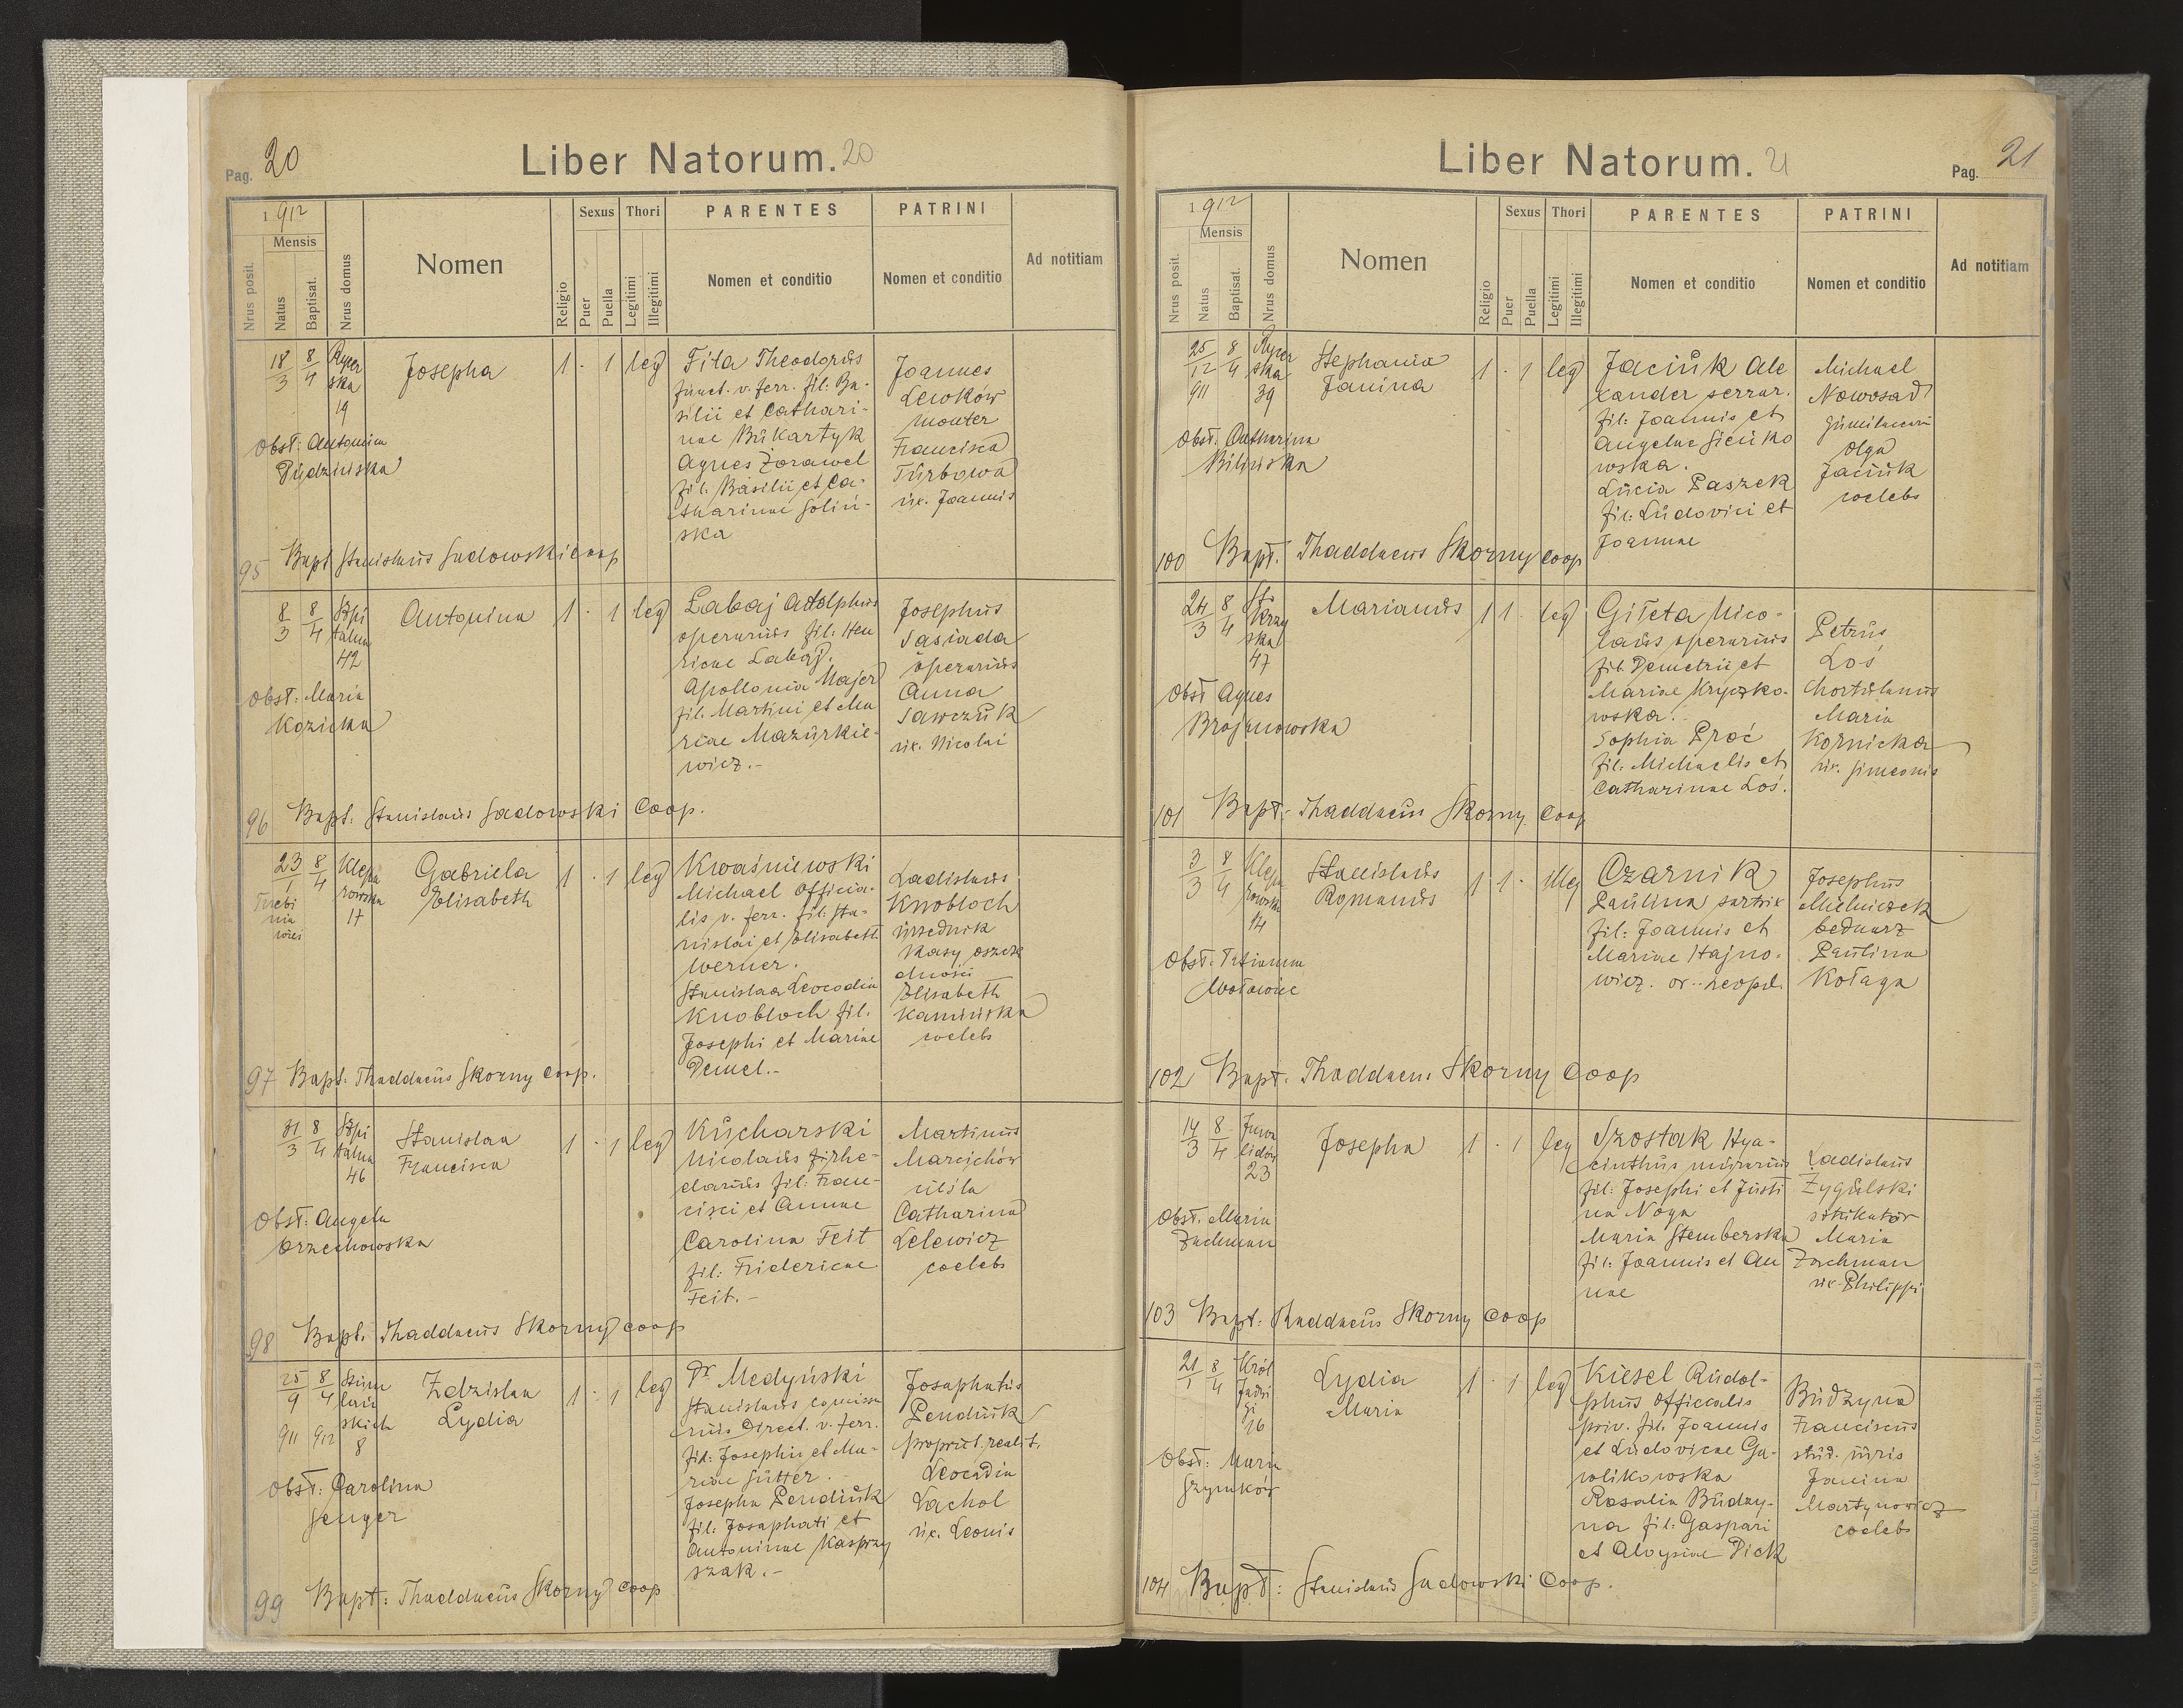 Pag. 20
Liber Natorum. 20
1912
Mensis
Nrus posit.
Natus
Baptisat.
Nrus domus
Nomen
Religio
Sexus
Puer
Puella
Thori
Legitimi
Illegitimi
PARENTES
Nomen et conditio
PATRINI
Nomen et conditio
Ad notitiam
18/3 8/4 Rycer
ska
19
Josepha
1 · 1 leg
Fita Theodorus
funct. v. ferr. fil: Ba-
silii et Cathari-
nae Bukartyk
Agnes Żorawel
fil: Basilii et Ca-
tharinae Soliń-
ska
Joannes
Lewków
monter
Francisca
Turbowa
ux. Joannis
Obst: Antonina
Pudzińska
95 Bapt Stanislaus Sadowski coop
8/3 8/4 Szpi
talna
42
Antonina
1 · 1 leg
Łabaj Adolphus
operarius fil: Hen
ricae Łabaj.
Apollonia Majer
fil. Martini et Ma
riae Mazurkie-
wicz.-
Josephus
Sasiada
operarius
Anna
Sawczuk
ux. Nicolai
Obst: Maria
Kozicka
96 Bapt: Stanislaus Sadowski Coop.
23/1 8/4 Klepa
rowska
17
Gabriela
Elisabeth
1 · 1 leg
Kwaśniewski
Michael officia-
lis v. ferr. fil: Sta-
nislai et Elisabeth
Werner.
Stanislaa Leocadia
Knobloch fil.
Josephi et Mariae
Demel.-
Ladislaus
Knobloch
urzednik
Kasy oszczę
dności
Elisabeth
Kamińska
coelebs
97 Bapt: Thaddaeus Skorny Coop.
31/3 8/4 Szpi
talna
46
Stanislaa
Francisca
1 · 1 leg
Kucharski
Nicolaus
fil: Fran-
cisci et Annae
Carolina Feit
fil: Fridericae
Feit.-
Martinus
Marcichów
Catharina
Lelewicz
coelebs
Obst: Angela
Orzechowska
98 Bapt. Thaddaeus Skorny coop
25/9 8/4
911 912
skich
8
Zdzislaa
Lydia
1 · 1 leg
Dr Medyński
Stanislaus comissa
rius Direct. v. ferr.
fil: Josephi et Ma-
riae Sutter.
Josepha Pendiuk
fil: Josaphati et
Antoninae Kasprzy
szak.-
Josaphatus
Pendiuk
propriet. realit.
Leocadia
Lachol
ux. Leonis
Obst: Carolina
Senger
99 Bapt: Thaddaeus Skorny coop
Liber Natorum. 21
Pag. 21
1912
Mensis
Nrus posit.
Natus
Baptisat.
Nrus domus
Nomen
Religio
Sexus
Puer
Puella
Thori
Legitimi
Illegitimi
PARENTES
Nomen et conditio
PATRINI
Nomen et conditio
Ad notitiam
25/12 8/4 Rycer
911 ska
39
Stephania
Janina
1 · 1 leg
Jaciuk Ale
xander serrar.
fil: Joannis et
Angelae Sieńko
wska.
Lucia Paszek
fil: Ludovici et
Joannae
Michael
Nowosad
Olga
Jaciuk
coelebs
Obst. Catharina
Bilińska
100 Bapt. Thaddaeus Skorny coop
24/3 8/4 St.
Krzy
ska
47
Marianus
1 1 · leg
Gileta Nico-
laus operarius
fil. Demetrii et
Mariae Kryczko-
wska.
Sophia Proć
fil. Michaelis et
Catharinae Łoś.
Petrus
Łoś
hortulanus
Maria
Kornicka
ux. Simeonis
Obst Agnes
Brojanowska
101 Bapt: Thaddaeus Skorny Coop
3/3 8/4 Klepa
rowska
14
Stanislaus
Romanus
1 1 · illeg
Czarnik
Paulina sartrix
fil: Joannis et
Mariae Hajno-
wicz.
Josephus
Mielniczek
bednarz
Paulina
Kołaga
Obst: Tatianna
Wołowiec
102 Bapt. Thaddaeus Skorny Coop
14/3 8/4 Inwa
lidów
23
Josepha
1 · 1 leg
Szostak Hya-
cinthus murarius
fil: Josephi et Justi
na Noga
Maria Stemberska
fil: Joannis et An
nae
Ladislaus
Zygulski
Maria
Zachman
ux. Philippi
Obst. Maria
Zachman
103 Bapt: Thaddaeus Skorny Coop
21/1 8/4 Król
Jadwi
gi
16
Lydia
Maria
1 · 1 leg
Kiesel Rudol-
phus officialis
priv. fil. Joannis
et Ludovicae Ga-
wlikowska
Rosalia Budzy-
na fil: Gaspari
et Aloysiae Pick
Budzyna
Franciscus
stud. iuris
Janina
Martynowicz
coelebs
Obst: Maria
Szymków
104 Bapt: Stanislaus Sadowski Coop.